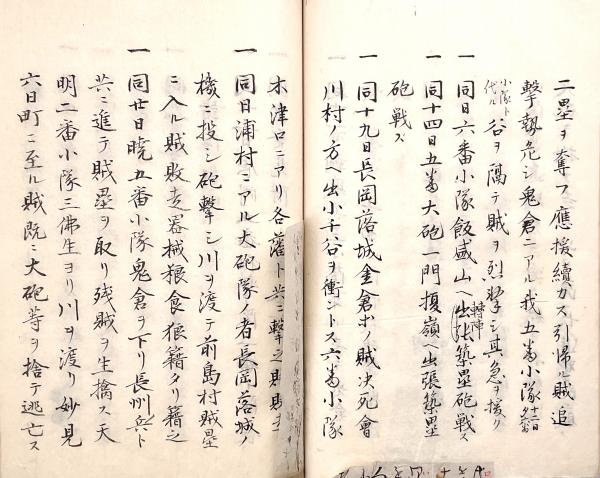 二塁ヲ奪フ應援續カス引帰ル賊追
撃勢危シ鬼倉ニアル我五番小隊
小隊ト代ル谷ヲ隔テ賊ヲ烈撃シ其急ヲ援ク
一 同日六番小隊飯盛山ヘ出張築塁砲戦ス
轉陣
一 同十四日五番大砲一門榎嶺ヘ出張築塁
砲戦ス
一 同十九日長岡落城金倉ホノ賊決死會
川村ノ方ヘ出小千谷ヲ衝ントス六番小隊
木津口ニアリ各藩ト共ニ撃之賊敗走
一 同日浦村ニアル大砲隊ノ者長岡落城ノ
機ニ投シ砲撃シ川ヲ渡テ前島村賊塁
ニ入ル賊敗走器械粮食狼籍タリ籍之
一 同廿日暁五番小隊鬼倉ヲ下リ長州兵ト
共ニ進テ賊塁ヲ取リ残賊ヲ生擒ス天
明二番小隊三佛生ヨリ川ヲ渡リ妙見
六日町ニ至ル賊既ニ大砲等ヲ捨テ逃亡ス